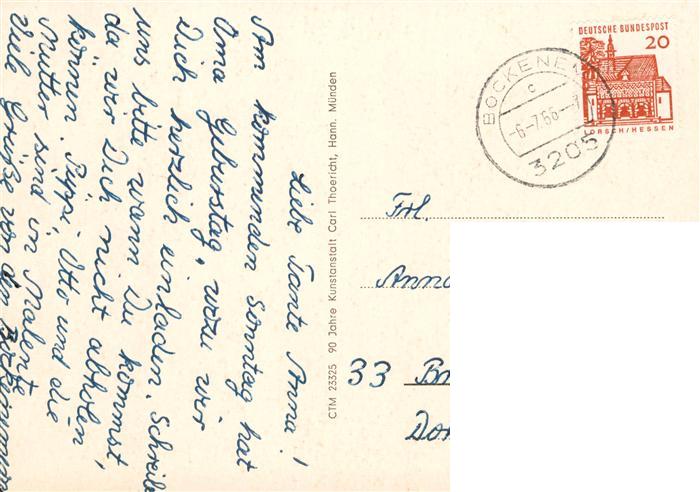 Liebe Tante Anna!
Am kommenden Sonntag hat
Oma Geburstag, wozu wir
Dich herzlich einladen. Schreibe
uns bitte wann Du kommst
da wir Dich nicht abholen
können. Püppi, Otto und die
Mutter sind in Malente
Viele Grüße von den
CTM 23325 90 Jahre Kunstanstalt Carl Thoericht, Hann. Münden
DEUTSCHE BUNDESPOST
20
LORSCH/HESSEN
BOCKENEM
c
-6.-7.66-
3205
Frl.
Anna
33 B
Dom